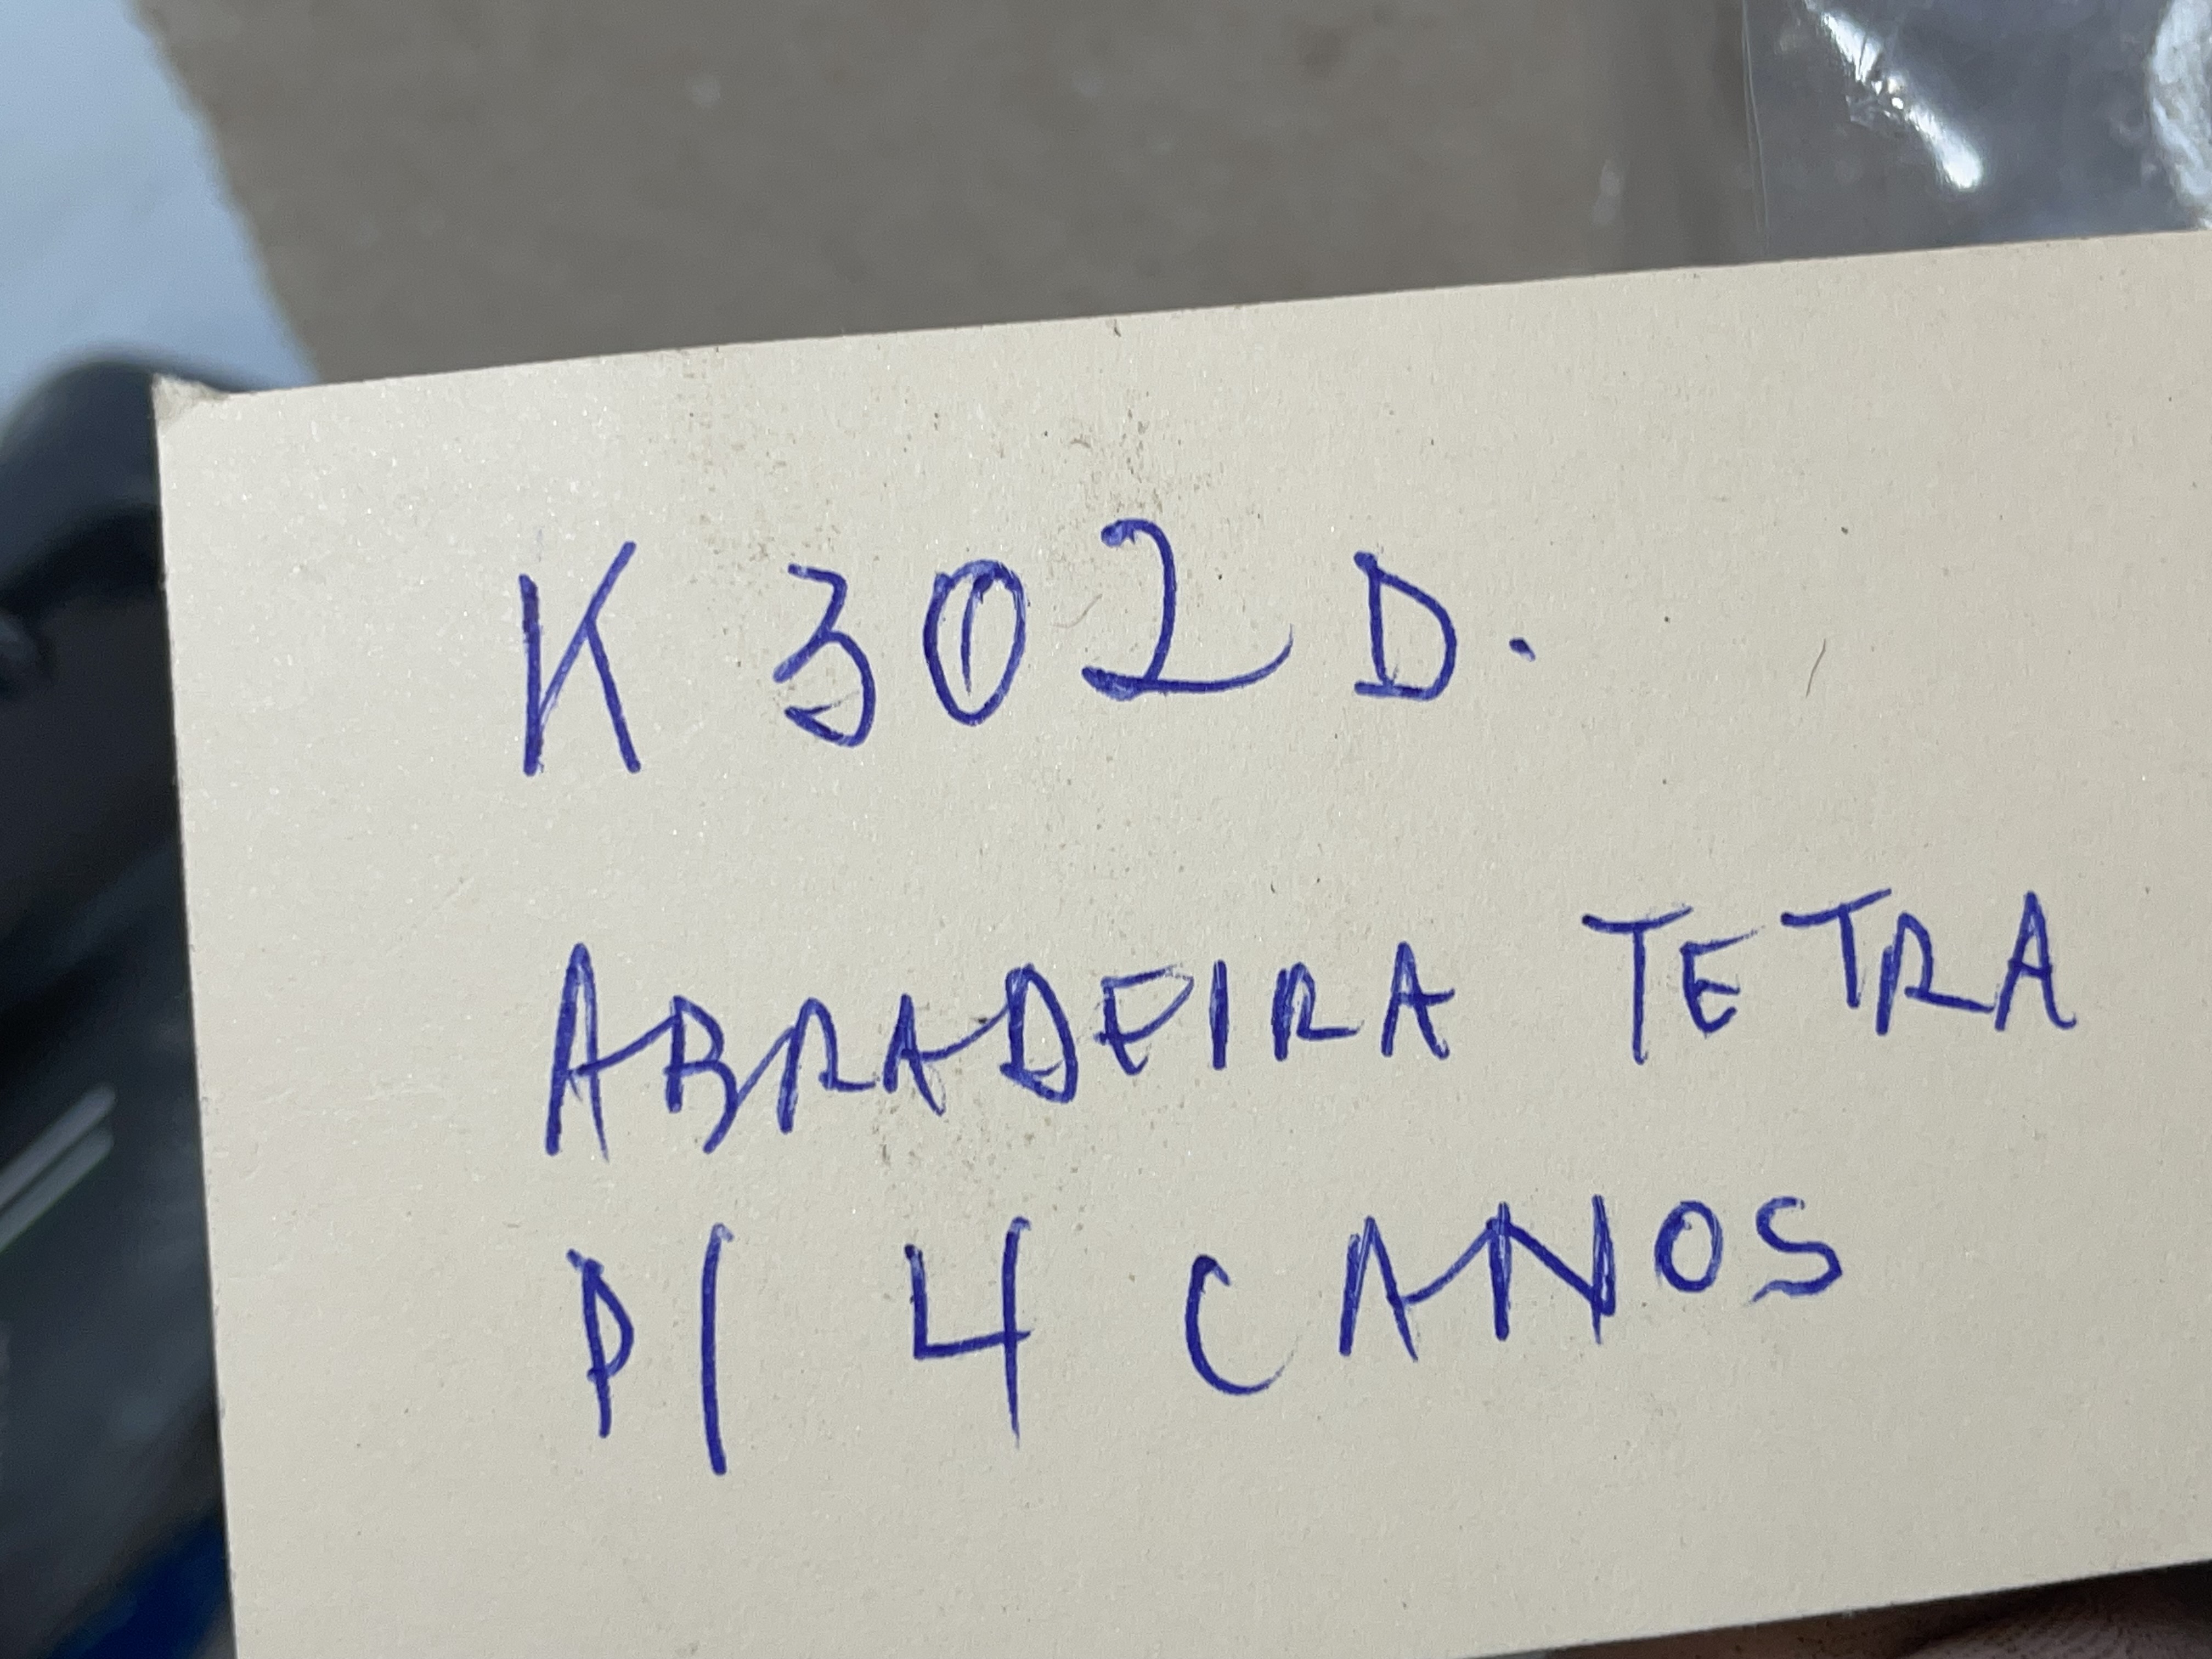 K 302 D.
ABRADEIRA TETRA
P/ 4 CANOS